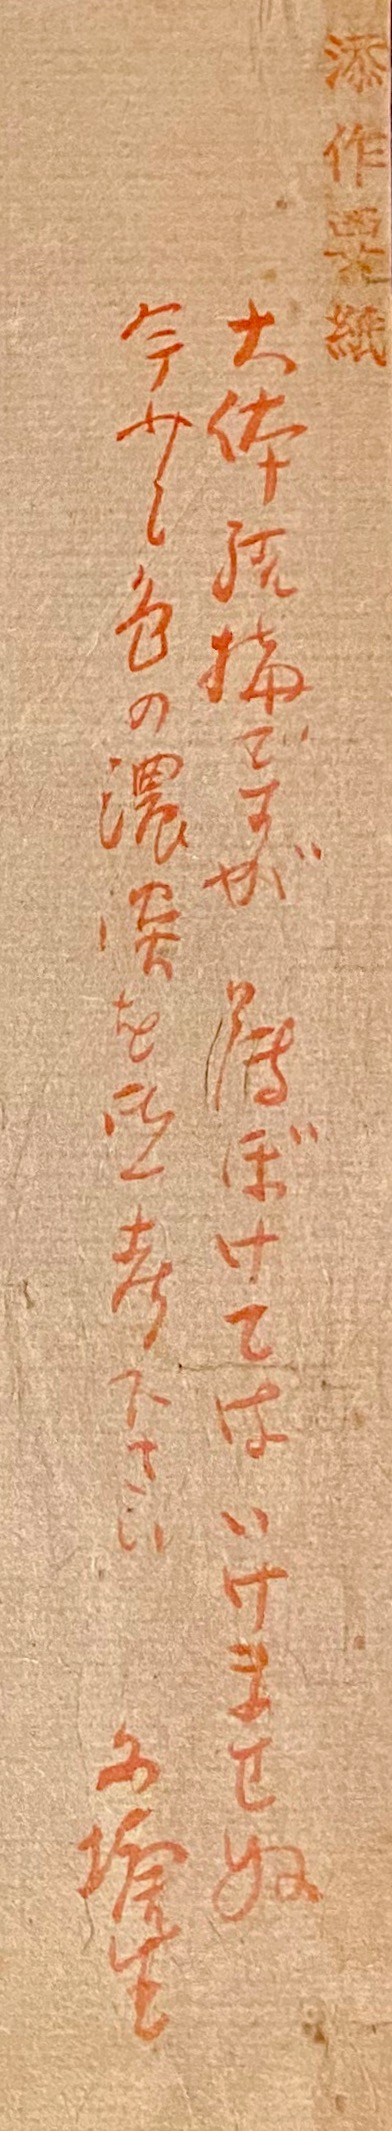 添作要紙
大体結搆ですが 薄ぼけてはいけませぬ
今少し色の濃淡を御考下さい